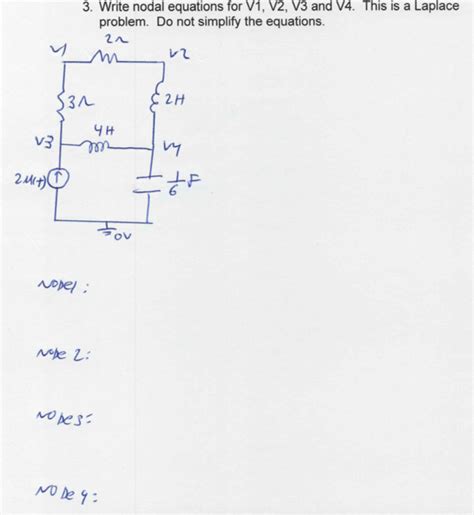 3. Write nodal equations for V1, V2, V3 and V4. This is a Laplace
problem. Do not simplify the equations.
2Ω
V1
V2
3Ω
2H
4H
V3
V4
2u(t)
1/6 F
0V
NODE1:
NODE 2:
NODE3:
NODE 4: